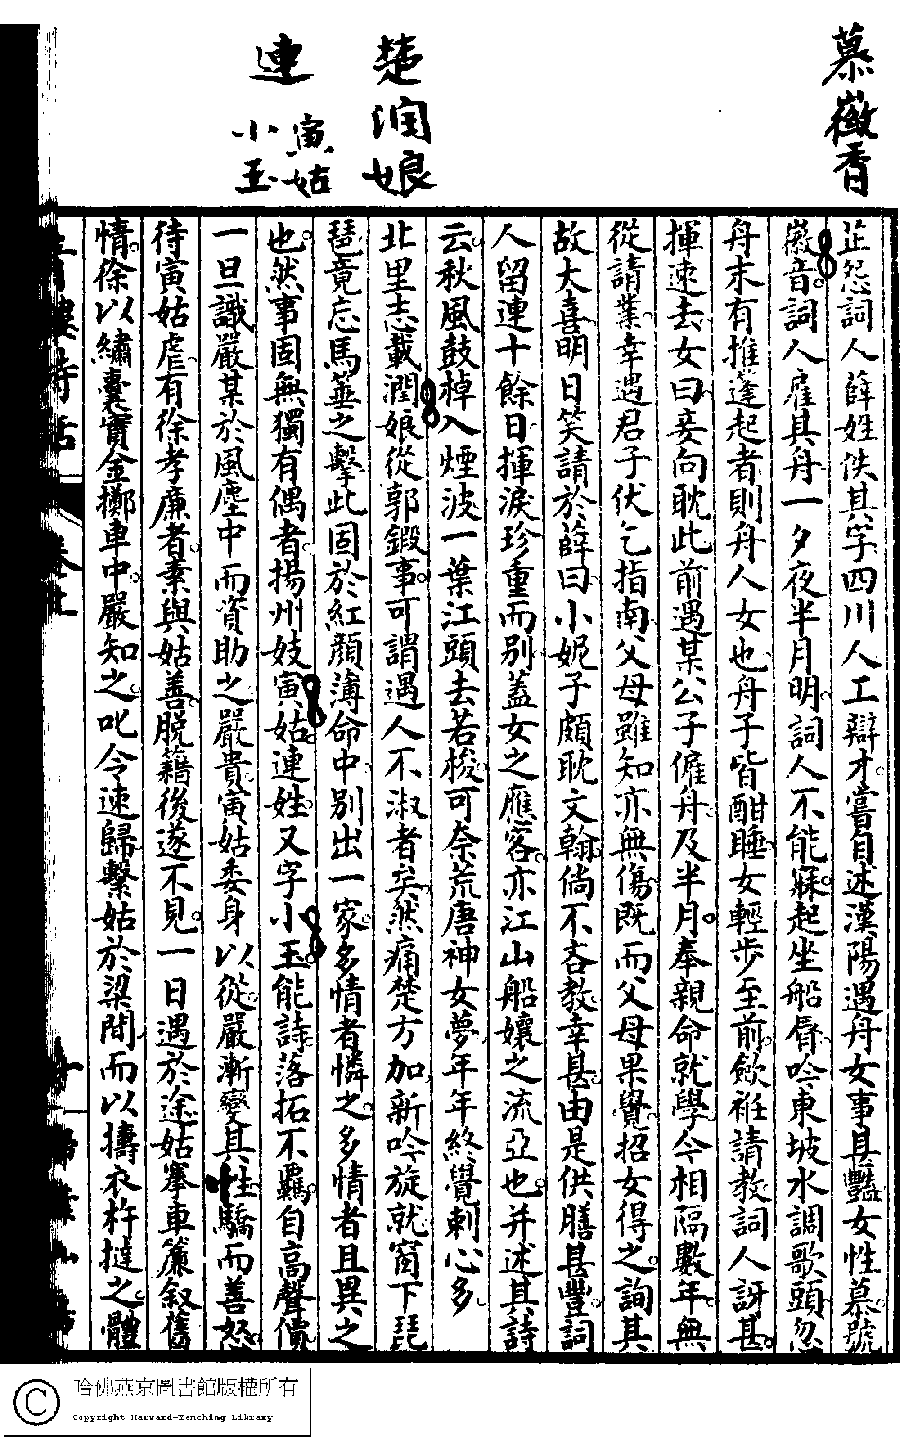 慕徽香
楚润娘
連
寅姑
小玉
芷怨詞人薛姓佚其字四川人工辯才嘗自述漢陽遇舟女事具豔女性慕號
徽音詞人雇其舟一夕夜半月明詞人不能寐起坐船脣吟東坡水調歌頭忽
舟末有推蓬起者則舟人女也舟子皆酣睡女輕步至前歛袵請教詞人訝甚
揮速去女曰妾向耽此前遇某公子僱舟及半月奉親命就學今相隔數年無
從請業幸遇君子伏乞指南父母雖知亦無傷既而父母果覺招女得之詢其
故大喜明日笑請於薛曰小妮子頗耽文翰倘不吝教幸甚由是供膳甚豐詞
人留連十餘日揮淚珍重而别蓋女之應客亦江山船孃之流亞也并述其詩
云秋風鼓棹入煙波一葉江頭去若梭可奈荒唐神女夢年年終覺刺心多
北里志載潤娘從郭鍛事可謂遇人不淑者矣然痛楚方加新吟旋就窗下琵
琶竟忘馬箠之擊此固於紅顏薄命中别出一家多情者憐之多情者且異之
也然事固無獨有偶者揚州妓寅姑連姓又字小玉能詩落拓不羈自高聲價
一旦識嚴某於風塵中而資助之嚴貴寅姑委身以從嚴漸變其性驕而善怒
待寅姑虐有徐孝廉者素與姑善脫籍後遂不見一日遇於途姑搴車簾叙舊
情徐以繡囊寶金擲車中嚴知之叱令速歸繫姑於梁間而以擣衣杵撻之體
哈佛燕京圖書館版權所有
Copyright Harvard-Yenching Library